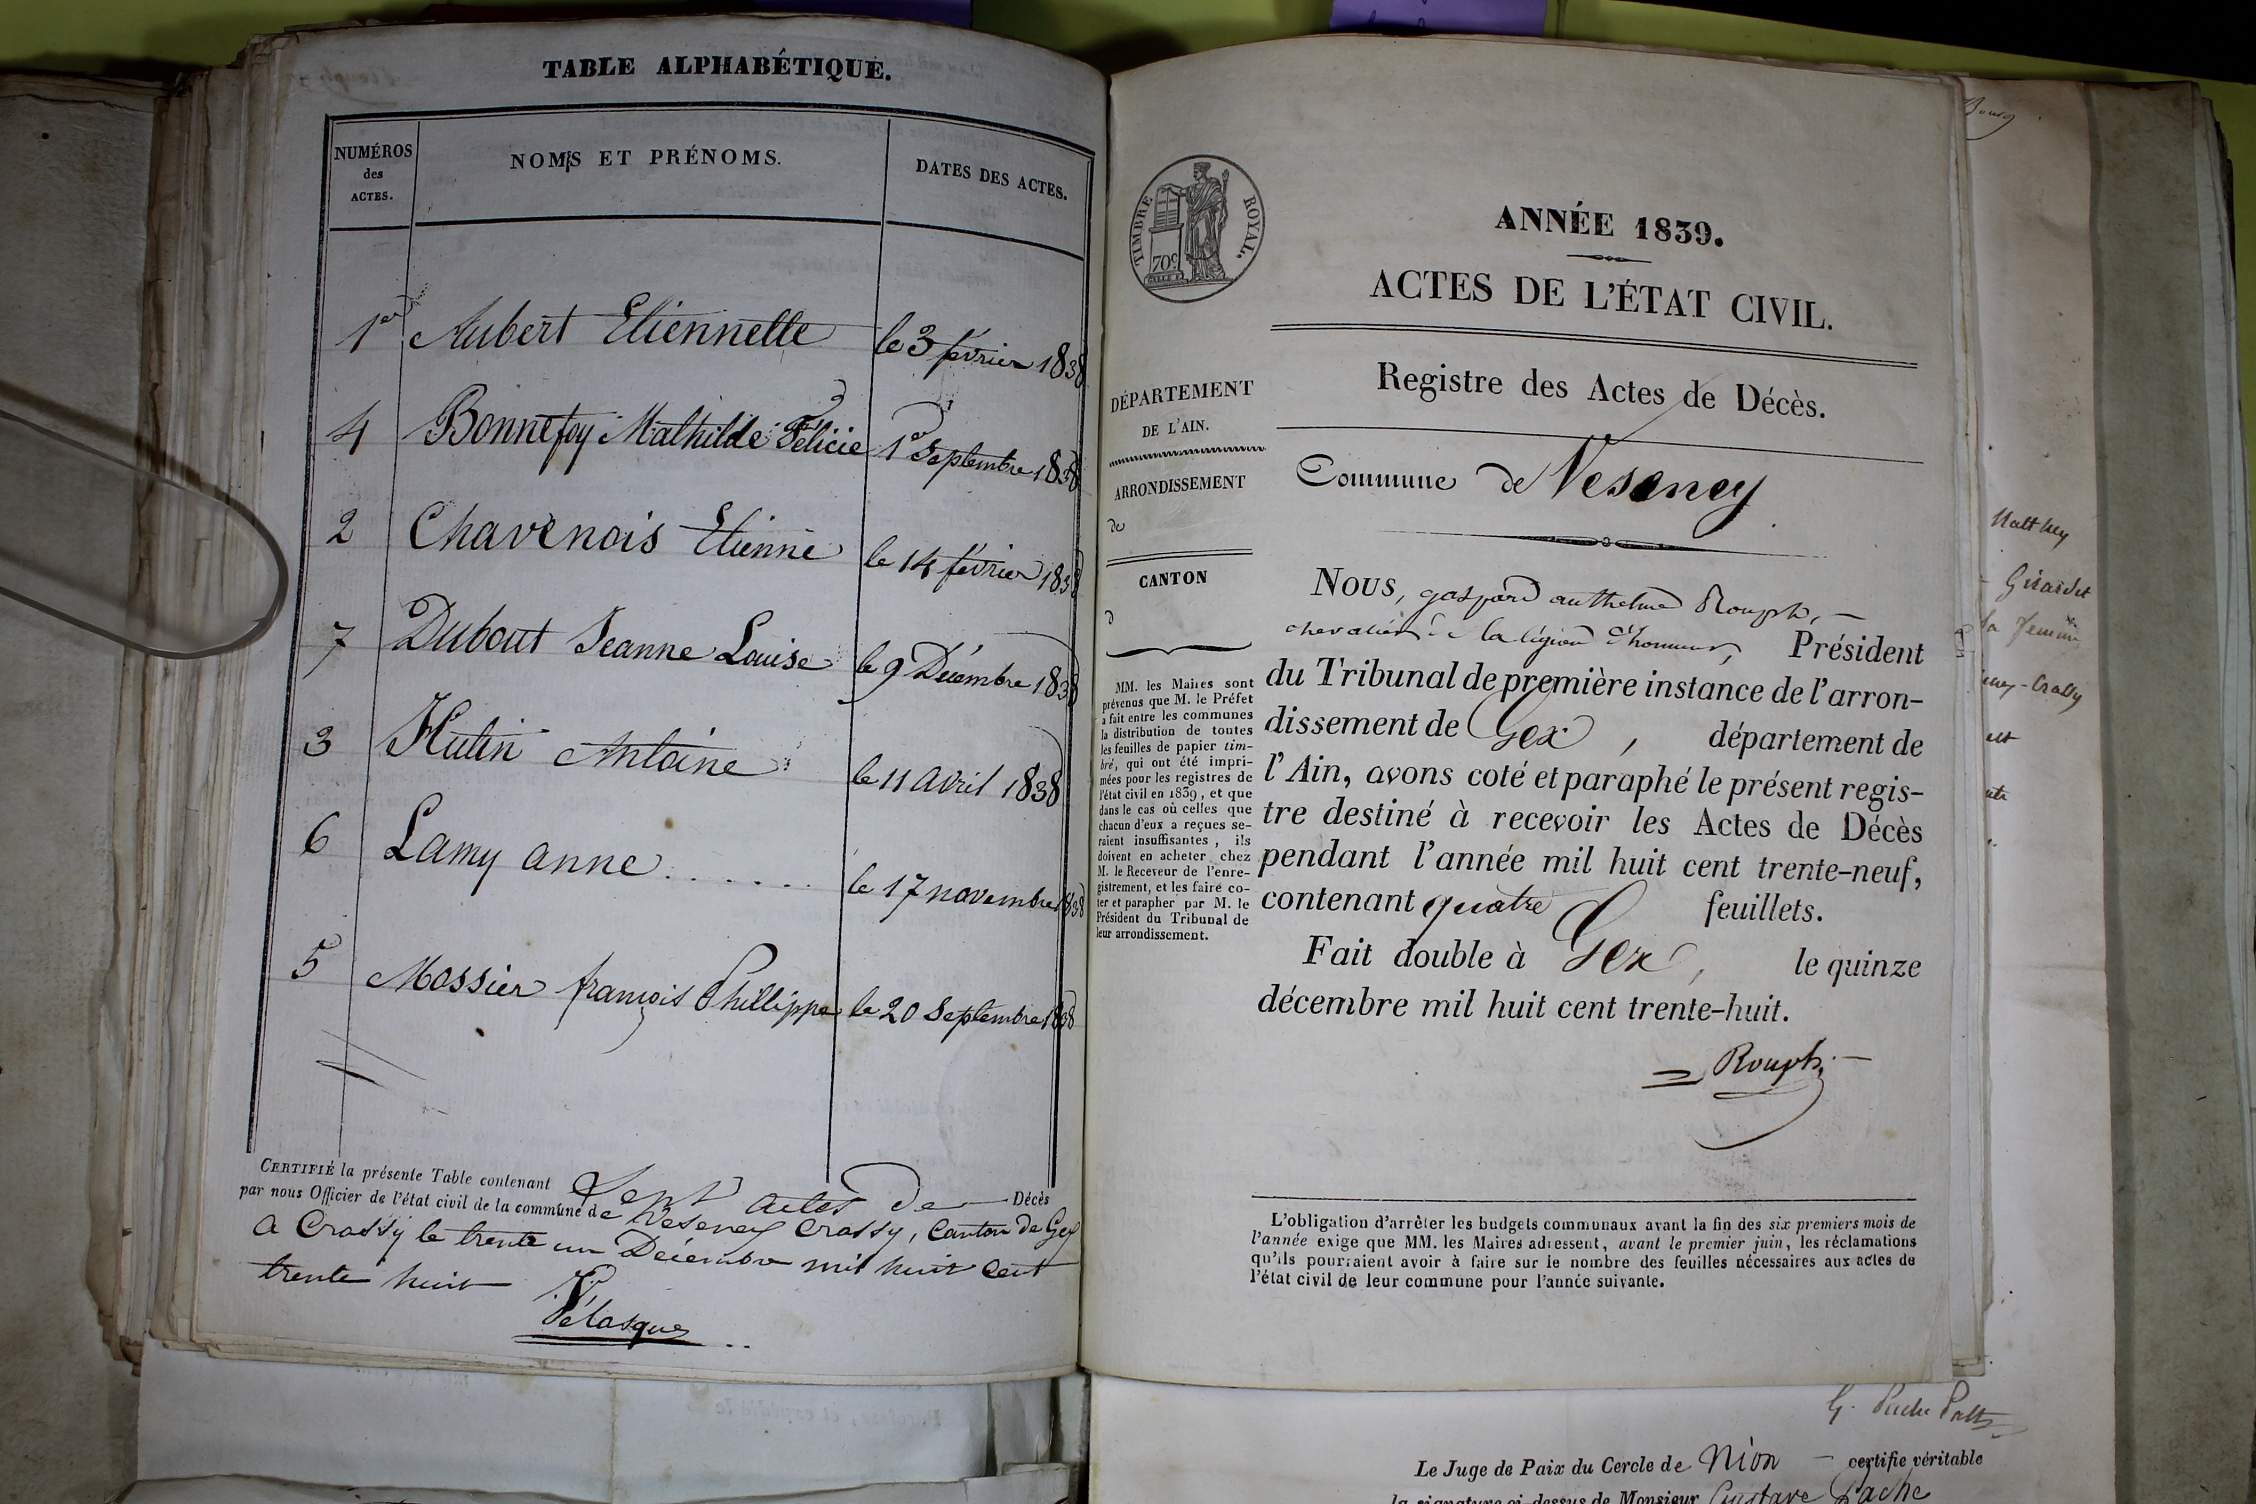 TABLE ALPHABÉTIQUE.
NUMÉROS
des
ACTES.
NOMS ET PRÉNOMS.
DATES DES ACTES.
1er Aubert Etiennette le 3 février 1838
4 Bonnefoy Mathilde Félicie 1er Septembre 1838
2 Chavenois Etienne le 14 février 1838
7 Dubout Jeanne Louise le 9 Décembre 1838
3 Hutin Antoine le 11 avril 1838
6 Lamy anne . . . . . . . le 17 novembre 1838
5 Mossier françois Phillippe le 20 Septembre 1838
CERTIFIÉ la présente Table contenant Sept actes de Décès
par nous Officier de l'état civil de la commune de Veseney Crassy, Canton de Gex
a Crassy le trente un Décembre mil huit cent
trente huit
Pélasque
TIMBRE ROYAL.
70c
ANNÉE 1839.
ACTES DE L'ÉTAT CIVIL.
Registre des Actes de Décès.
Commune de Veseney
DÉPARTEMENT
DE L'AIN.
ARRONDISSEMENT
de
CANTON
d
MM. les Maires sont
prévenus que M. le Préfet
a fait entre les communes
la distribution de toutes
les feuilles de papier tim-
bré, qui ont été impri-
mées pour les registres de
l'état civil en 1839, et que
dans le cas où celles que
chacun d'eux a reçues se-
raient insuffisantes, ils
doivent en acheter chez
M. le Receveur de l'enre-
gistrement, et les faire co-
ter et parapher par M. le
Président du Tribunal de
leur arrondissement.
NOUS, gaspard anthelme Rouph,
chevalier de la légion d'honneur, Président
du Tribunal de première instance de l'arron-
dissement de Gex, département de
l'Ain, avons coté et paraphé le présent regis-
tre destiné à recevoir les Actes de Décès
pendant l'année mil huit cent trente-neuf,
contenant quatre feuillets.
Fait double à Gex, le quinze
décembre mil huit cent trente-huit.
Rouph
L'obligation d'arrêter les budgets communaux avant la fin des six premiers mois de
l'année exige que MM. les Maires adressent, avant le premier juin, les réclamations
qu'ils pourraient avoir à faire sur le nombre des feuilles nécessaires aux actes de
l'état civil de leur commune pour l'année suivante.
Matthey
Girardet
sa femme
Crassy
est
Le Juge de Paix du Cercle de Nion — certifie véritable
la signature ci-dessus de Monsieur Gustave Pache